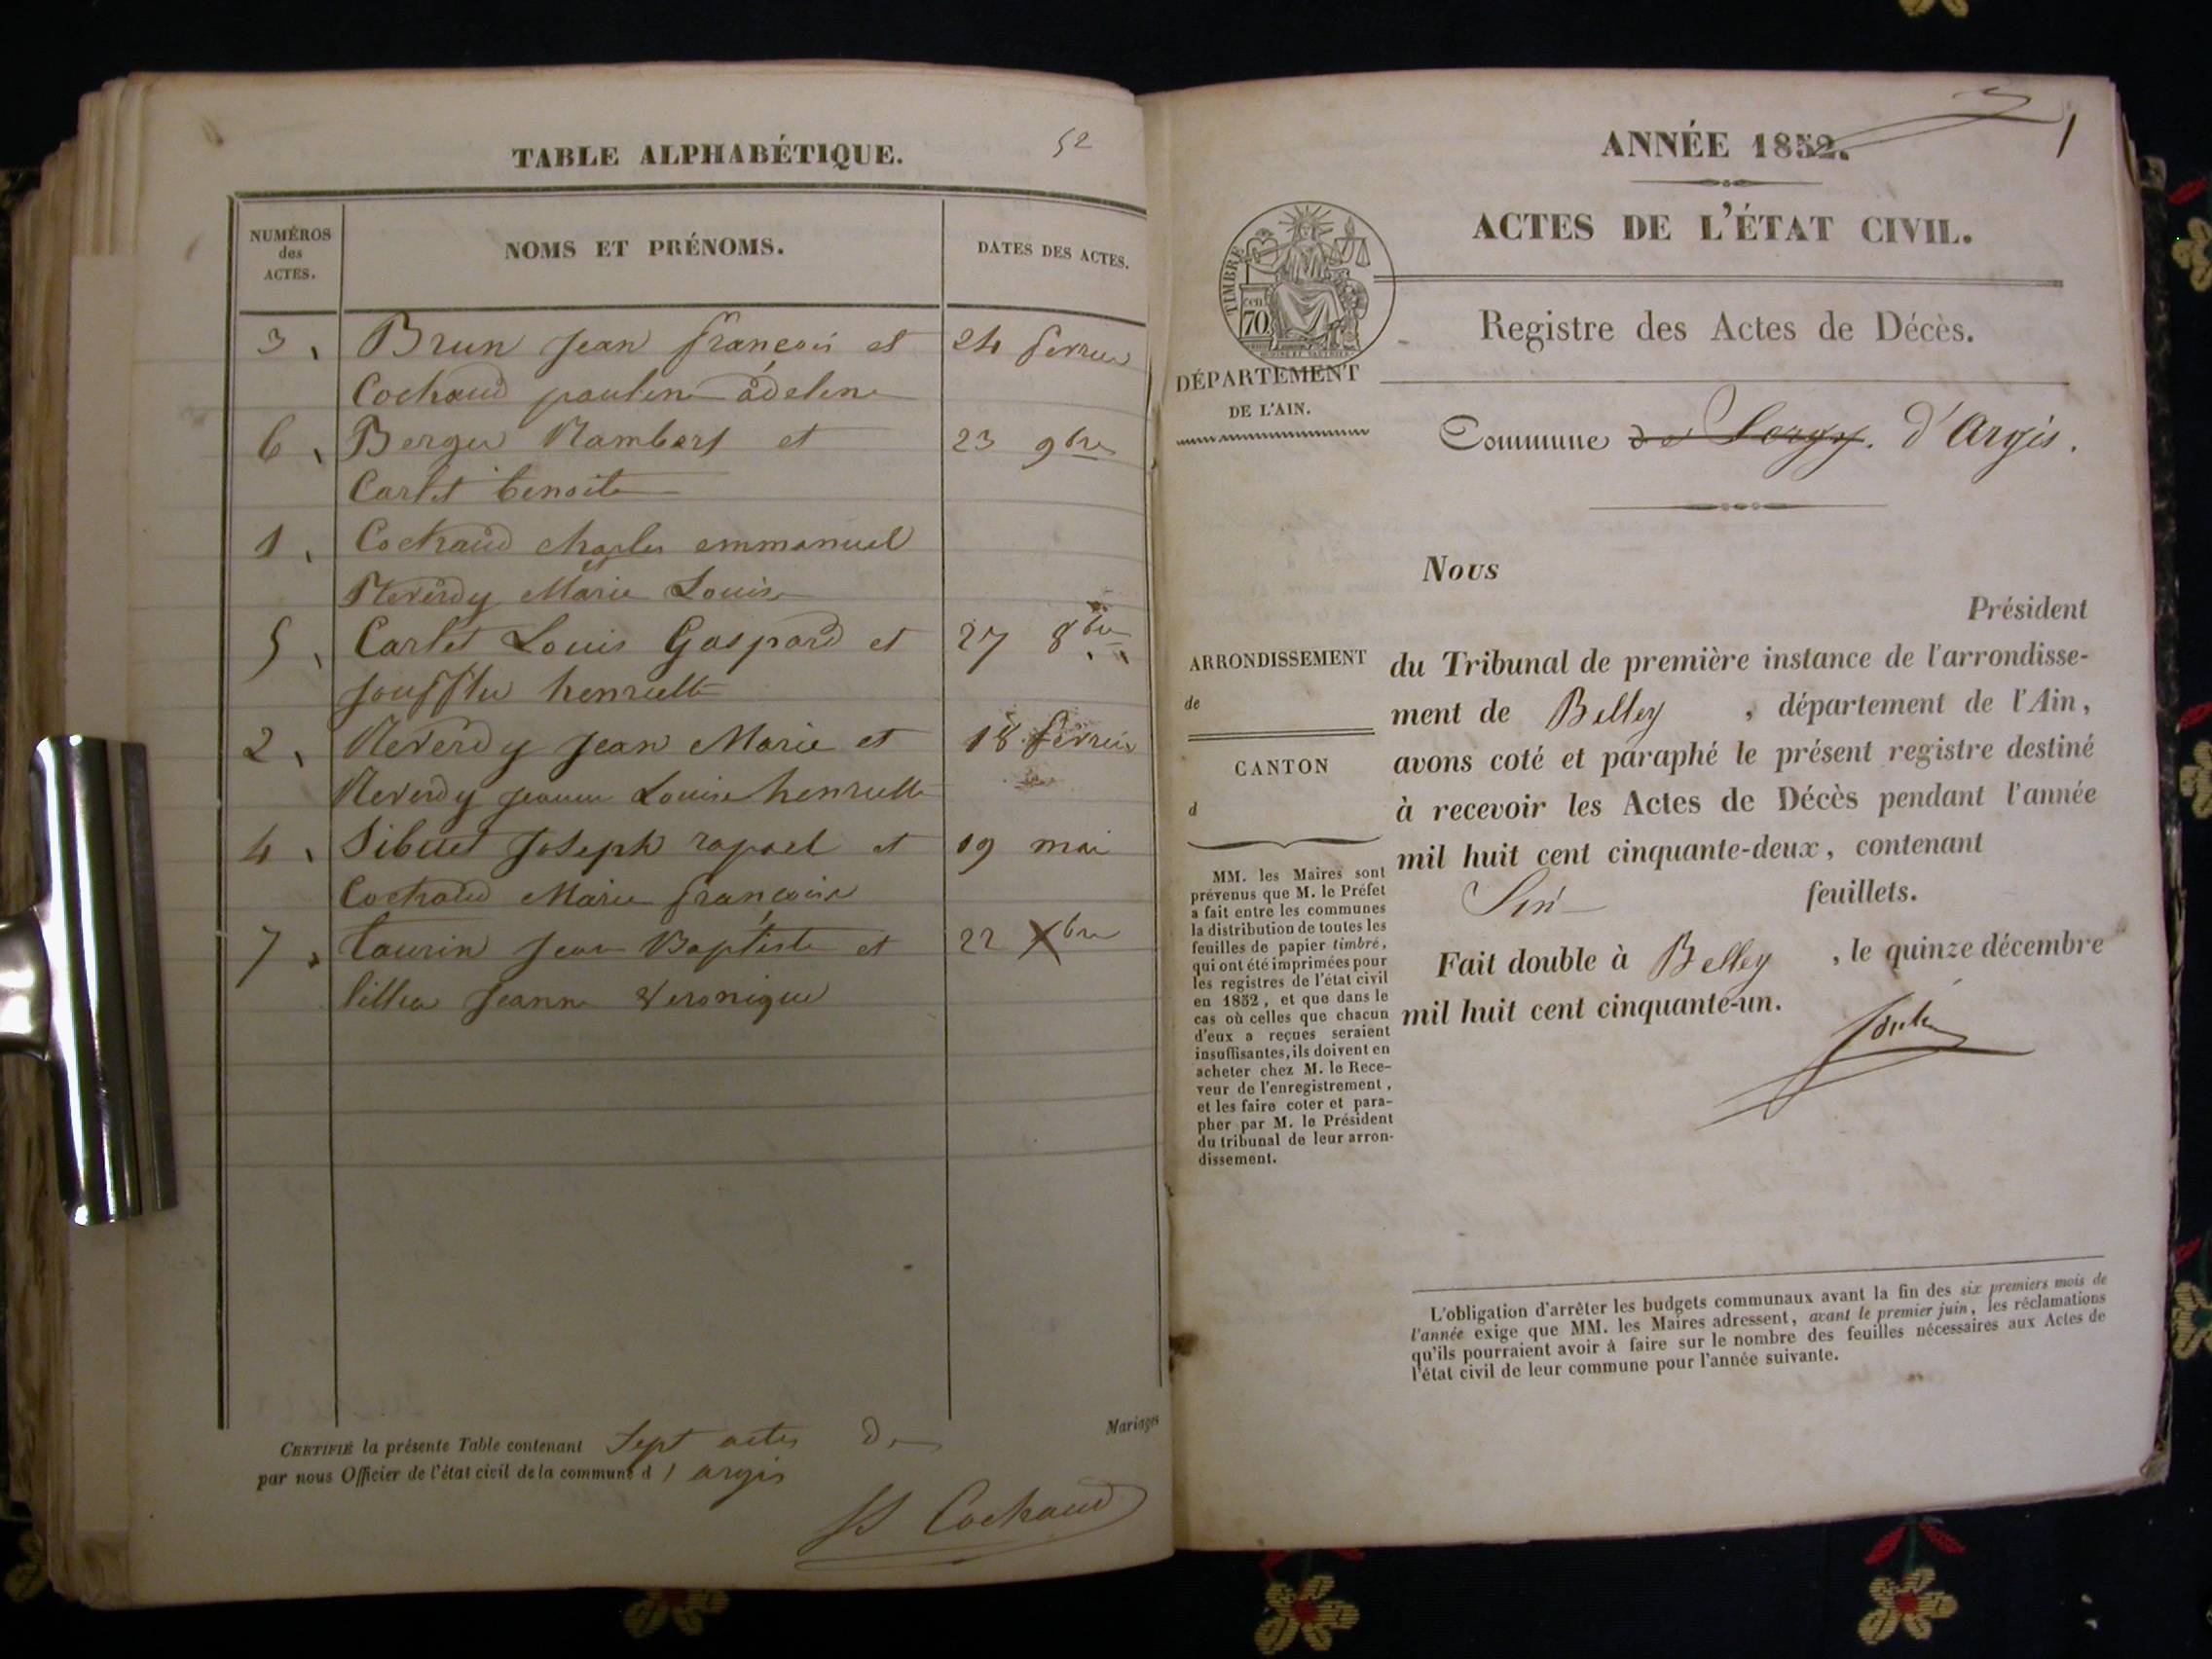 TABLE ALPHABÉTIQUE.
52
NUMÉROS
des
ACTES.
NOMS ET PRÉNOMS.
DATES DES ACTES.
3, Brun Jean françois et 24 fevrier
Cochaud pauline adeline
6, Berger Rambert et 23 9bre
Carlet benoite
1, Cochaud charles emmanuel
Reverdy Marie Louise
5, Carlet Louis Gaspard et 27 8bre
henriette
2, Reverdy Jean Marie et 18 fevrier
Reverdy jeanne Louise henriette
4, Sibuet Joseph rapael et 19 mai
Cochaud Marie françoise
7, taurin Jean Baptiste et 22 Xbre
Jeanne Veronique
Mariages
CERTIFIÉ la présente Table contenant Sept actes de
par nous Officier de l'état civil de la commune d'argis
Cochaud
1
ANNÉE 1852.
ACTES DE L'ÉTAT CIVIL.
TIMBRE
cen
70
Registre des Actes de Décès.
DÉPARTEMENT
DE L'AIN.
Commune de Sergy. d'Argis.
Nous
Président
ARRONDISSEMENT
de
CANTON
d
du Tribunal de première instance de l'arrondisse-
ment de Belley, département de l'Ain,
avons coté et paraphé le présent registre destiné
à recevoir les Actes de Décès pendant l'année
mil huit cent cinquante-deux, contenant
feuillets.
Fait double à Belley, le quinze décembre
mil huit cent cinquante-un.
MM. les Maires sont
prévenus que M. le Préfet
a fait entre les communes
la distribution de toutes les
feuilles de papier timbré,
qui ont été imprimées pour
les registres de l'état civil
en 1852, et que dans le
cas où celles que chacun
d'eux a reçues seraient
insuffisantes, ils doivent en
acheter chez M. le Rece-
veur de l'enregistrement,
et les faire coter et para-
pher par M. le Président
du tribunal de leur arron-
dissement.
L'obligation d'arrêter les budgets communaux avant la fin des six premiers mois de
l'année exige que MM. les Maires adressent, avant le premier juin, les réclamations
qu'ils pourraient avoir à faire sur le nombre des feuilles nécessaires aux Actes de
l'état civil de leur commune pour l'année suivante.